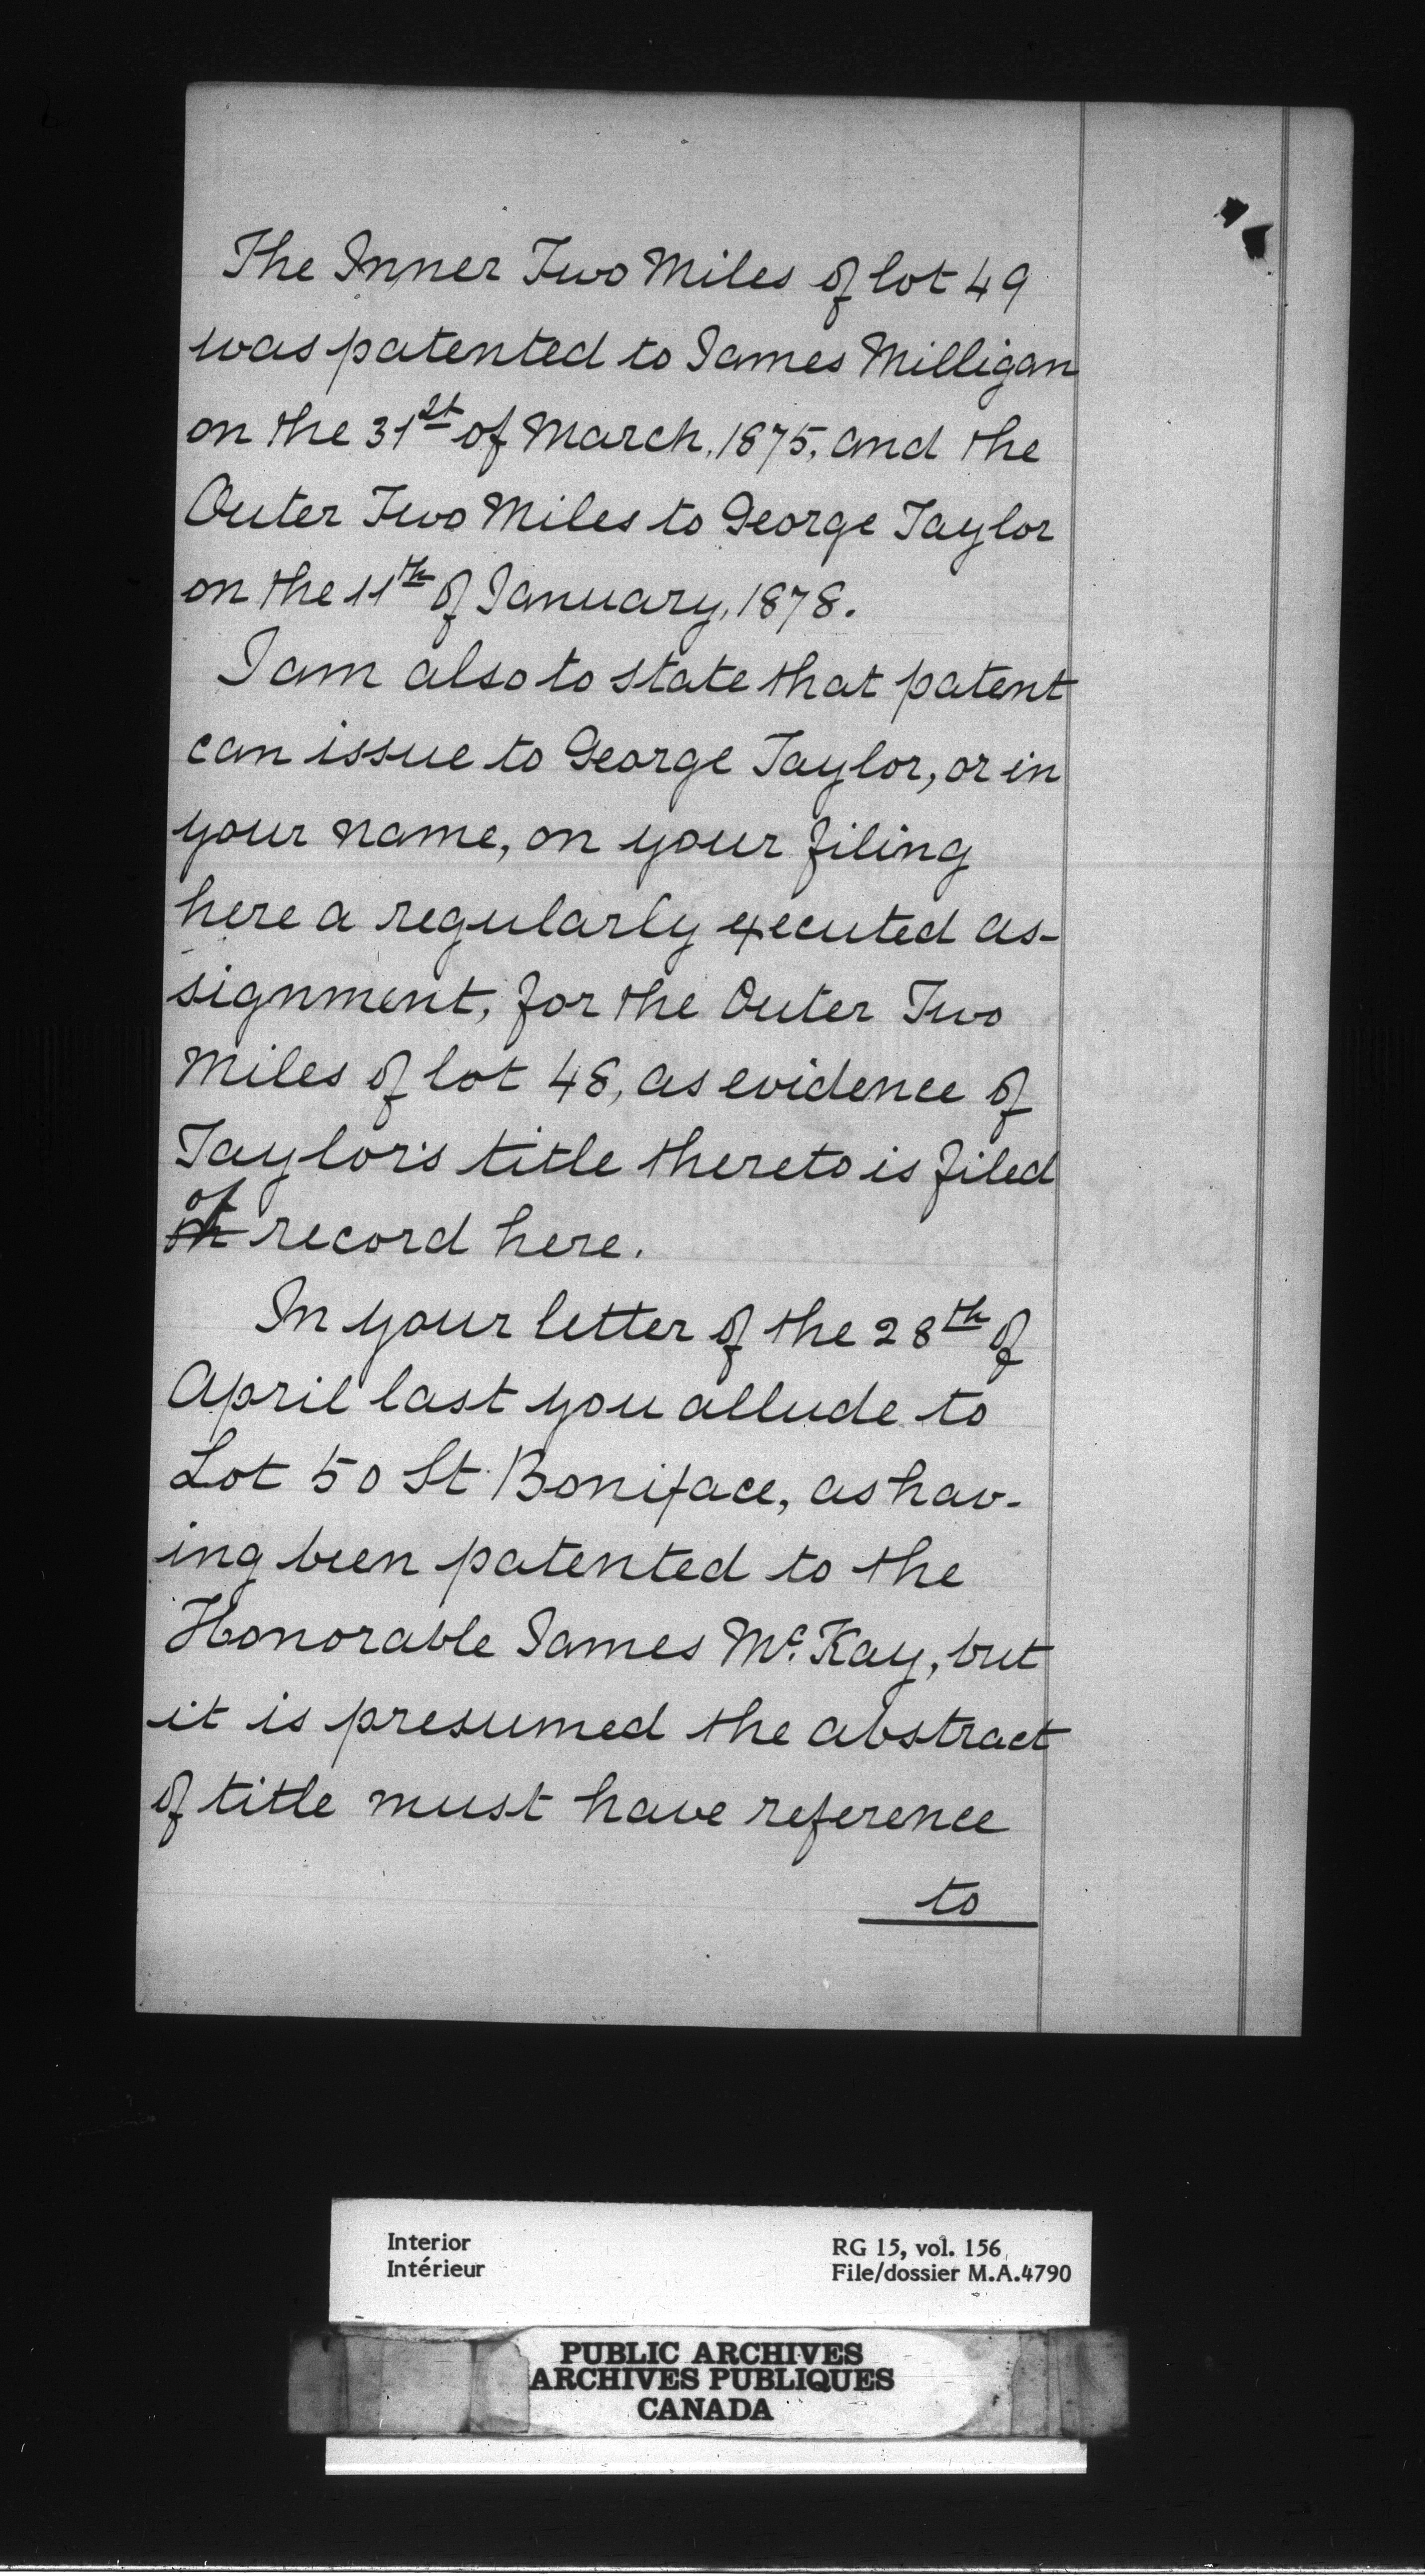 The Inner Two Miles of lot 49
was patented to James Milligan
on the 31st of March, 1875, and the
Outer Two Miles to George Taylor
on the 11th of January, 1878.
I am also to state that patent
can issue to George Taylor, or in
your name, on your filing
here a regularly executed as-
signment, for the Outer Two
Miles of lot 48, as evidence of
Taylor's title thereto is filed
of
on record here.
In your letter of the 28th of
April last you allude to
Lot 50 St. Boniface, as hav-
ing been patented to the
Honorable James Mc. Kay, but
it is presumed the abstract
of title must have reference
to
Interior
Intérieur
RG 15, vol. 156
File/dossier M.A.4790
PUBLIC ARCHIVES
ARCHIVES PUBLIQUES
CANADA